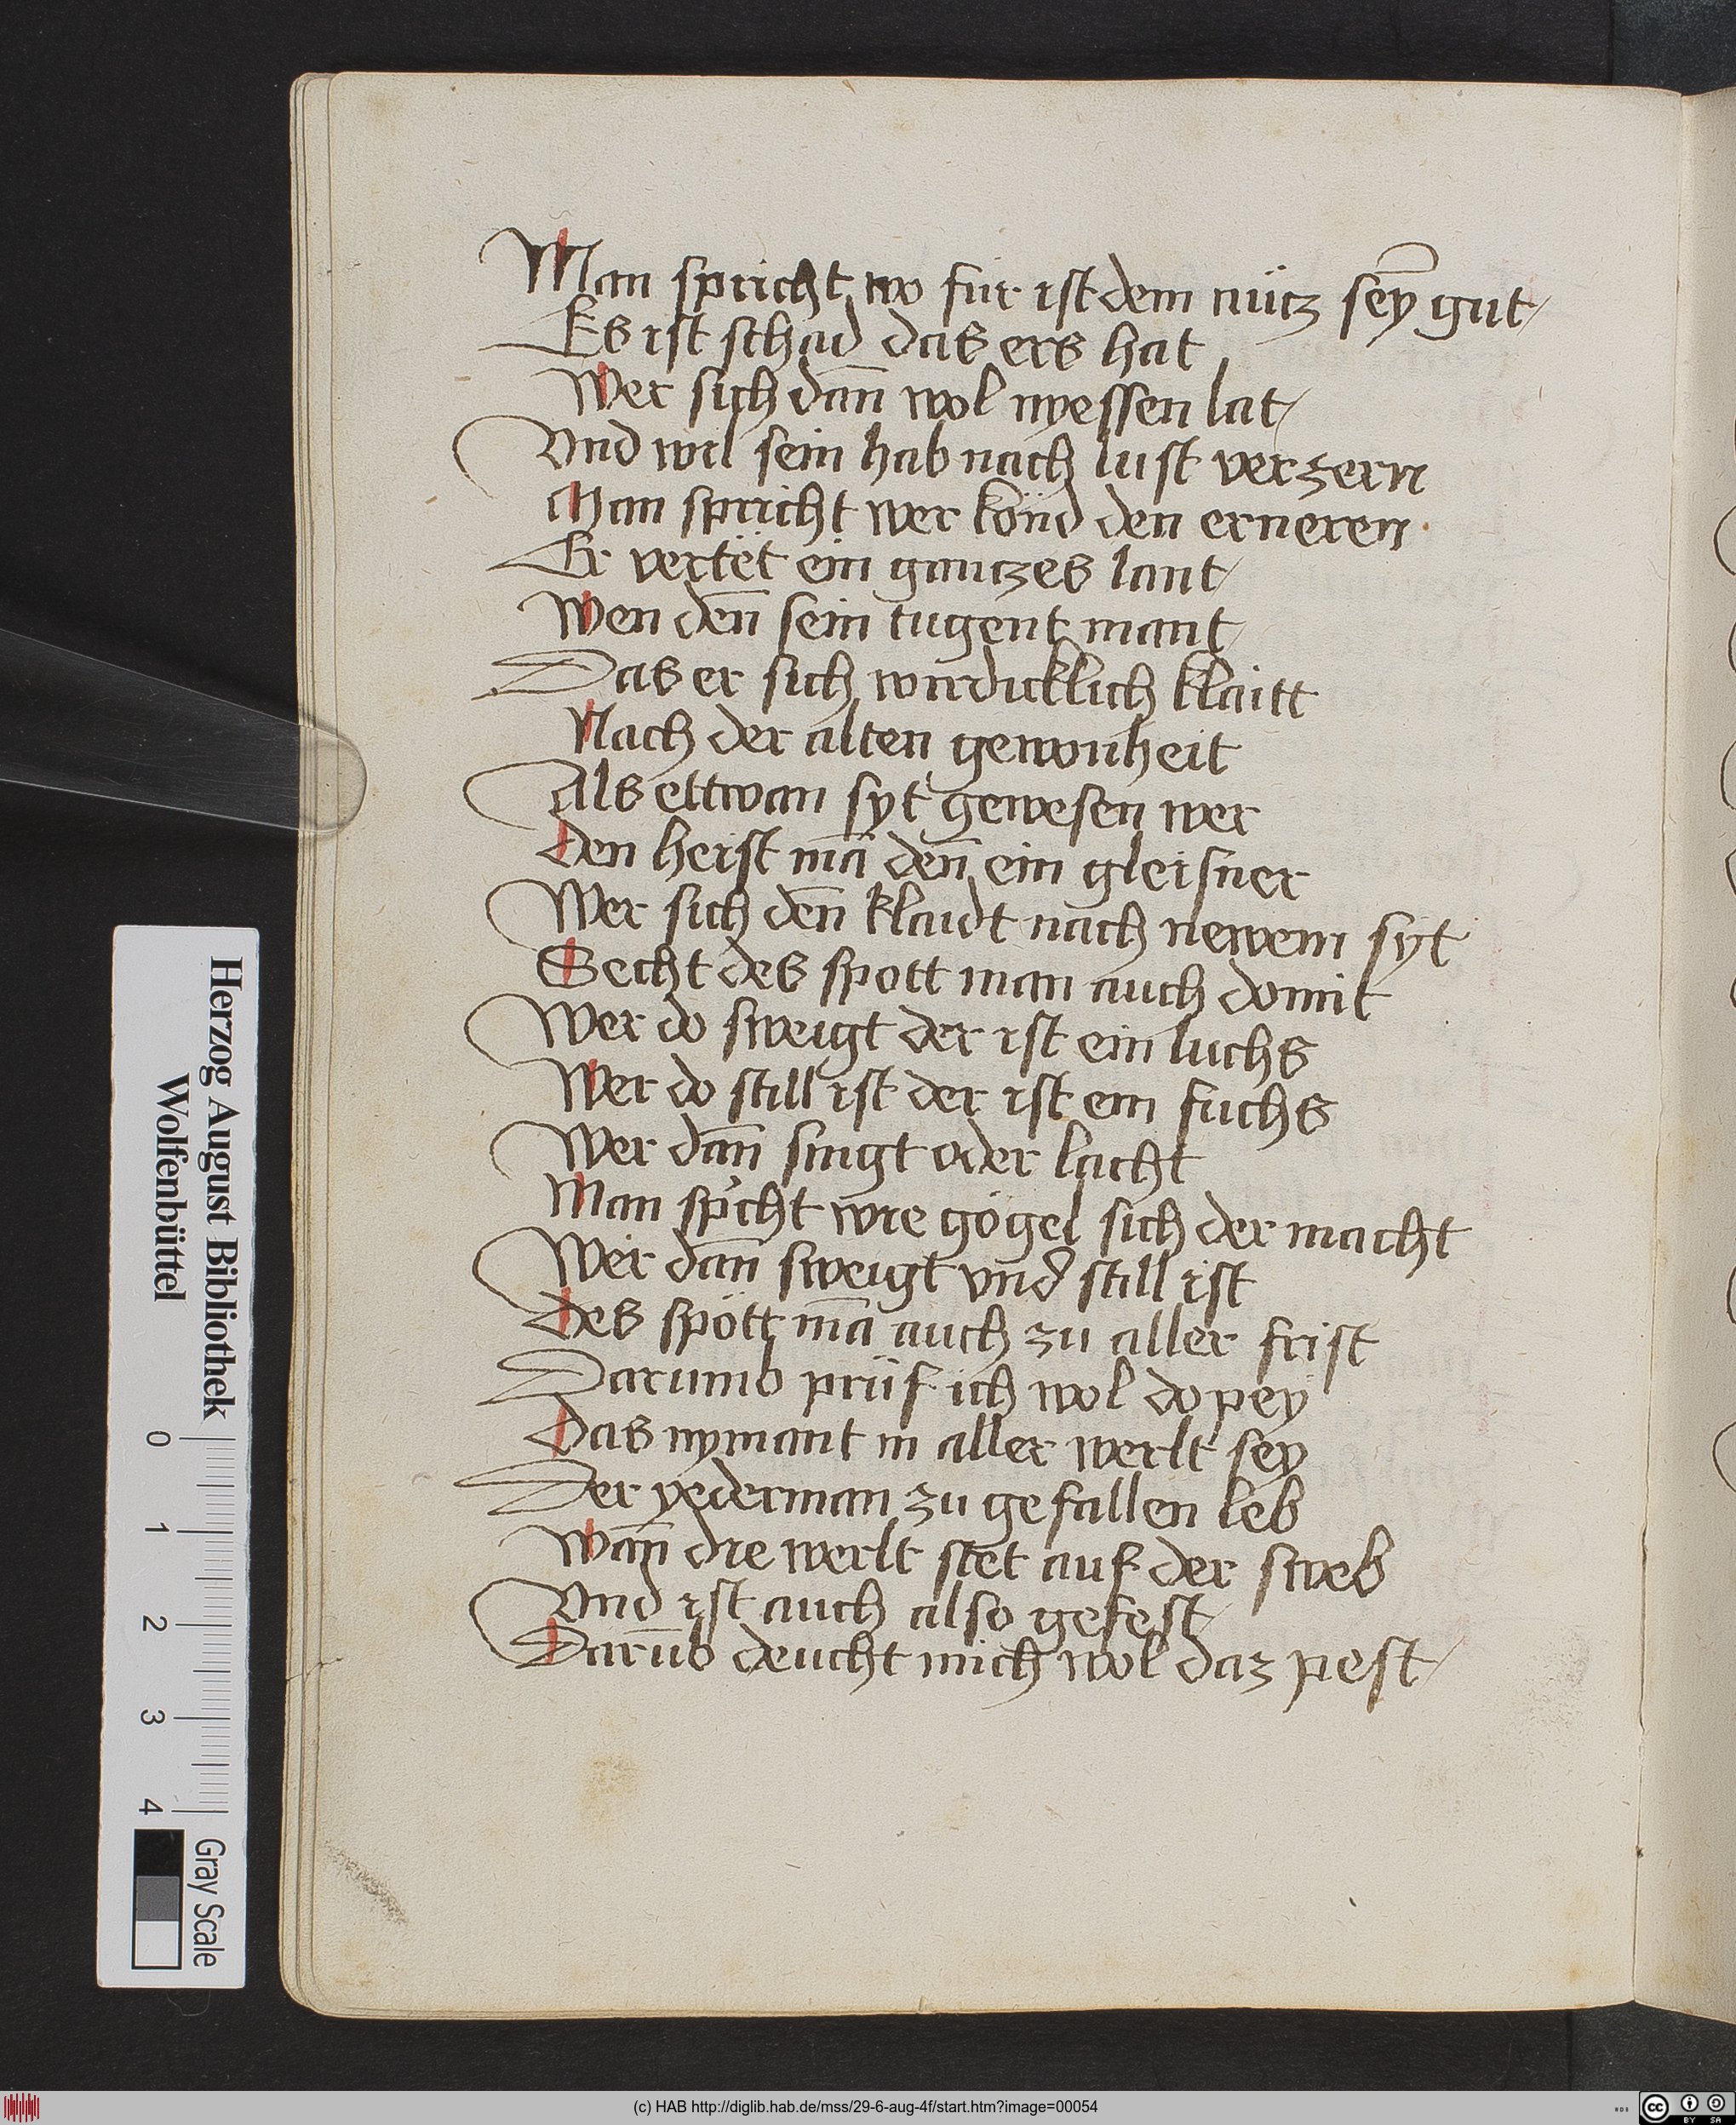 Man spricht wo für ist dem nütz sey̅ gut
Es ist schad das ers hat
Wer sich dan̅ wol nyessen lat
Vnd wil sein hab nach lust verzern
Man spricht wer könd den erneren
Er vertët ein gantzes lant
Wen den̅ sein tugent mant
Das er sich wirdicklich klaitt
Nach der alten gewonheit
Als ettwan syt gewesen wer
Den heist ma̅ den̅ ein gleisner
Wer sich den̅ klaidt nach newem syt
Secht des spott man auch domit
Wer do sweigt der ist ein luchs
Wer do still ist der ist ein fuchs
Wer dan̅ singt oder lacht
Man sp'cht wie gögel sich der macht
Wer dan̅ sweigt vnd still ist
Des spött ma̅ auch zu aller frist
Darumb prüf ich wol do pey
Das nymant in aller werlt sey
Der yederman zu gefallen leb
Wan̅ die werlt stet auf der sweb
Vnd ist auch also gefest
Daru̅b deucht mich wol daz pest
Herzog August Bibliothek
Wolfenbüttel
0 1 2 3 4
Gray Scale
(c) HAB http://diglib.hab.de/mss/29-6-aug-4f/start.htm?image=00054
cc BY SA